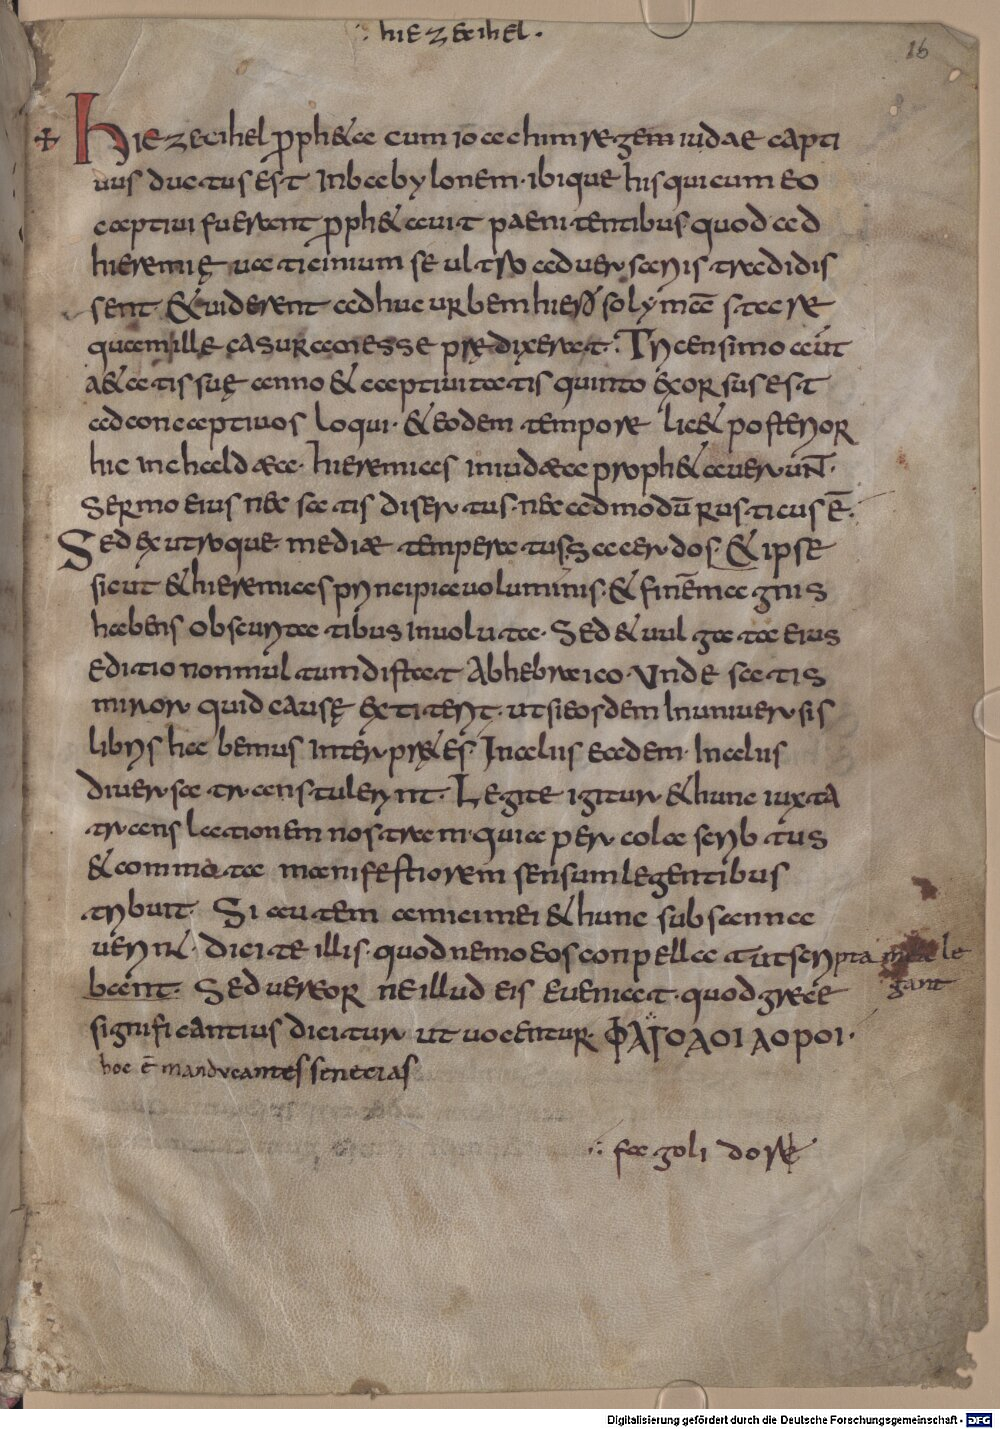 ∴ hiezecihel ·
16
✠ Hiezecihel proph&a cum ioachim regem iudae capti
uus ductus est In babylonem · ibique hisqui cum eo
captiui fuerant proph&auit paenitentibus · quod ad
hieremię uaticinium se ultro aduersariis tradidis
sent · &uiderent adhuc urbem hierosolymā stare
quam ille casuram esse prędixerat · Tricensimo aūt
a&atis suę anno & captiuitatis quinto exorsus est
ad concaptiuos loqui · & eodem tempore lic& posterior
hic in chaldæa · hieremias in iudæa proph&auerunt ·
Sermo eius nec satis disertus · nec admodū rusticus ē ·
Sed ex utroque mediæ temperatus · sacerdos · & ipse
sicut & hieremias principia uoluminis · & finēmagnis
habens obscuritatibus Inuoluta · Sed & uulgata eius
editio non multum distat Ab hebraico · Vnde satis
miror quid causę extiterit · ut si eosdem In uniuersis
libris habemus Interpr&es · In aliis eadem · In aliis
diuersa transtulerint · Legite igitur & hunc iuxta
translationem nostram · quia per cola scribtus
& commata manifestiorem sensum legentibus
tribuit · Si autem amici mei & hunc subsanna
uerint · dicite illis · quod nemo eos conpellat ut scripta mea le
gant
bant · Sed uereor ne illud eis eueniat · quod grece
significantius dicitur ut uocentur · ΦΑΓΟΛΟΙΛΟΡΟΙ ·
hoc ē manducantes senecias
∴ fagolidore
Digitalisierung gefördert durch die Deutsche Forschungsgemeinschaft - DFG